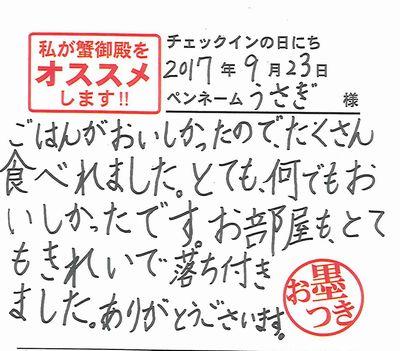 私が蟹御殿を
オススメ
します!!
チェックインの日にち
2017年9月23日
ペンネーム うさぎ 様
ごはんがおいしかったので、たくさん
食べれました。とても、何でもお
いしかったです。お部屋も、とて
もきれいで落ち付き
ました。ありがとうございます。
お墨つき